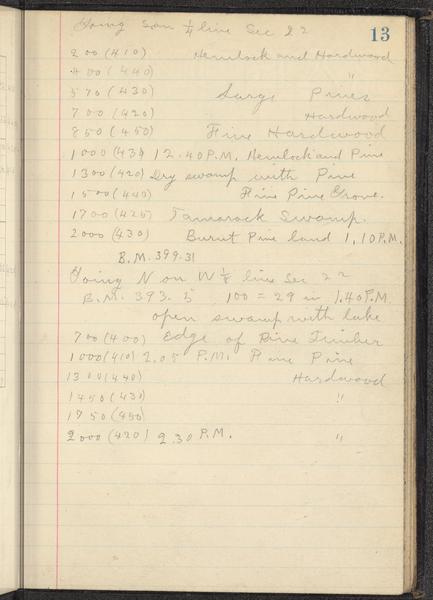 13
Going S on 1/4 line Sec 22
200 (410) Hemlock and Hardwood
400 (440) "
570 (430) Large Pines
700 (420) Hardwood
850 (450) Fine Hardwood
1000 (43 12.40 P.M. Hemlock and Pine
1300 (420) Dry swamp with Pine
1500 (440) Fine Pine Grove.
1700 (425) Tamarack Swamp.
2000 (430) Burnt Pine land 1.10 P.M.
B.M. 399.31
Going N on W 1/8 line Sec 22
B.M. 393.5 100 = 29 in 1.40 P.M.
open swamp with lake
700 (400) Edge of Pine Timber
1000 (410) 2.05 P.M. Pine
1300 (440) Hardwood
1450 (430) "
1750 (450)
2000 (420) 2.30 P.M. "